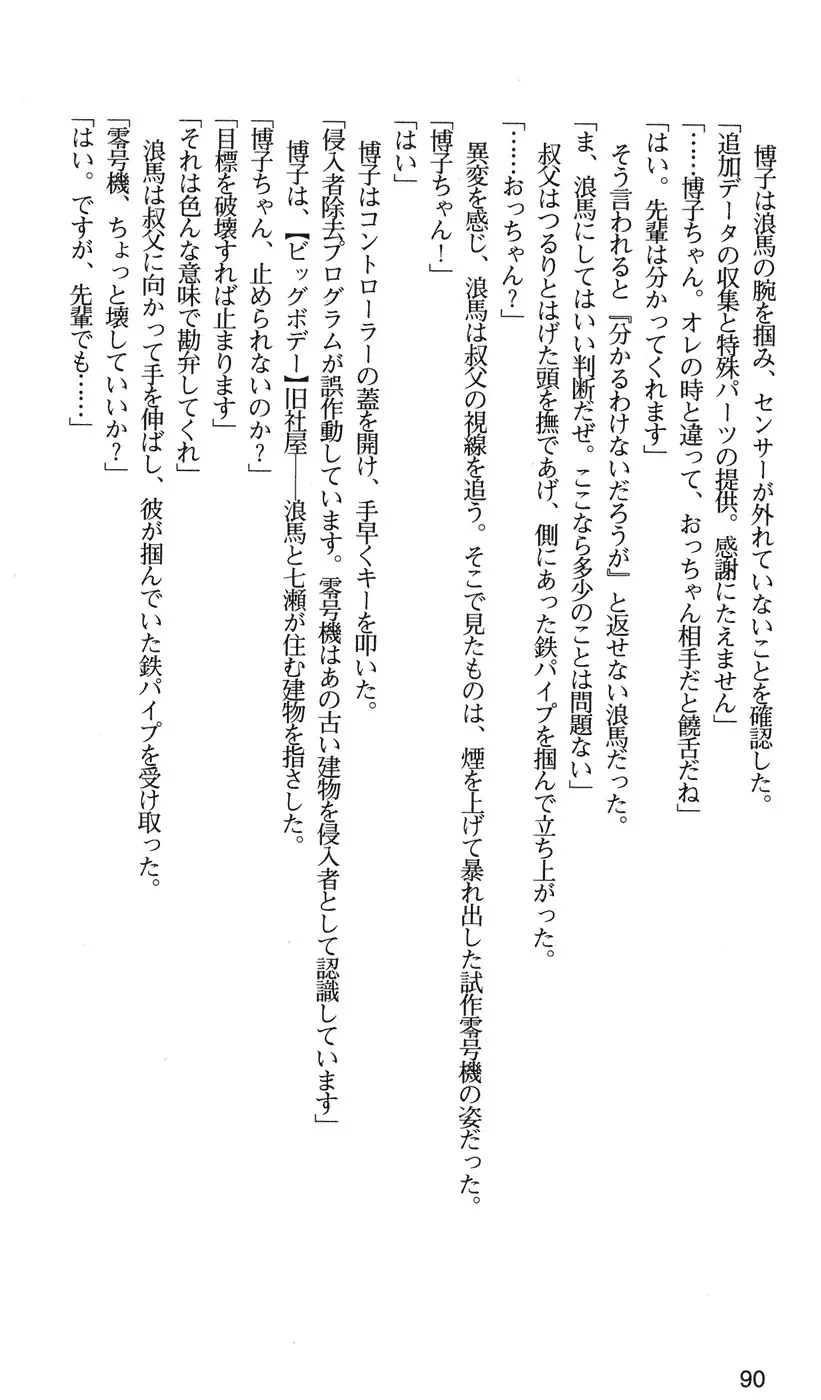 博子は浪馬の腕を掴み、センサーが外れていないことを確認した。
「追加データの収集と特殊パーツの提供。感謝にたえません」
「……博子ちゃん。オレの時と違って、おっちゃん相手だと饒舌だね」
「はい。先輩は分かってくれます」
　そう言われると『分かるわけないだろうが』と返せない浪馬だった。
「ま、浪馬にしてはいい判断だぜ。ここなら多少のことは問題ない」
　叔父はつるりとはげた頭を撫であげ、側にあった鉄パイプを掴んで立ち上がった。
「……おっちゃん？」
　異変を感じ、浪馬は叔父の視線を追う。そこで見たものは、煙を上げて暴れ出した試作零号機の姿だった。
「博子ちゃん！」
「はい」
　博子はコントローラーの蓋を開け、手早くキーを叩いた。
「侵入者除去プログラムが誤作動しています。零号機はあの古い建物を侵入者として認識しています」
　博子は、【ビッグボデー】旧社屋――浪馬と七瀬が住む建物を指さした。
「博子ちゃん、止められないのか？」
「目標を破壊すれば止まります」
「それは色んな意味で勘弁してくれ」
　浪馬は叔父に向かって手を伸ばし、彼が掴んでいた鉄パイプを受け取った。
「零号機、ちょっと壊していいか？」
「はい。ですが、先輩でも……」
90